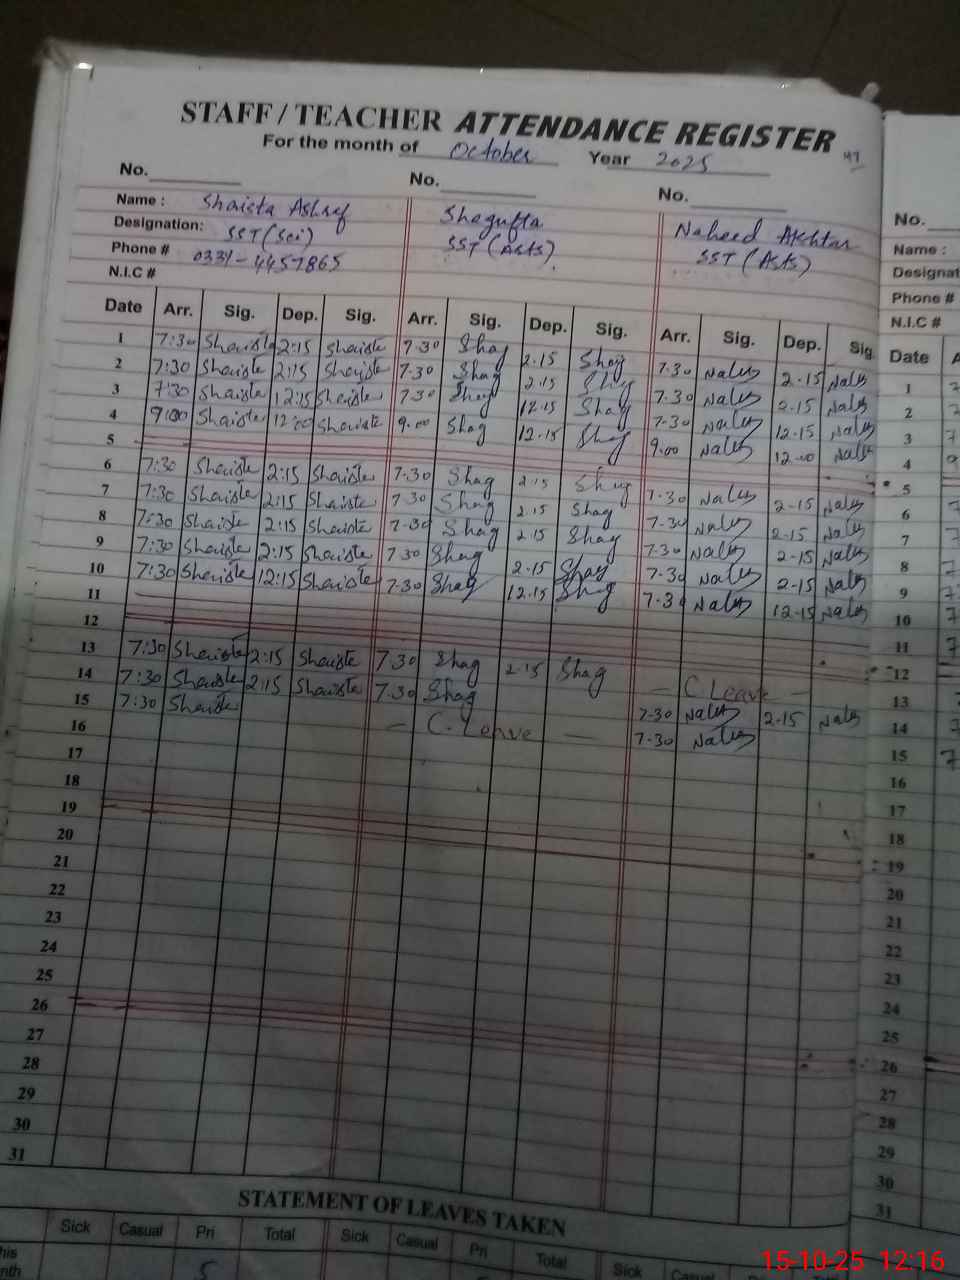 STAFF / TEACHER ATTENDANCE REGISTER
For the month of October Year 2025
No. No. No. No.
Name : Shaista Ashraf Shagufta Naheed Akhtar Name :
Designation: SST (Sci) SST (Arts) SST (Arts) Designat
Phone # 0331-4457865 Phone #
N.I.C # N.I.C #
Date Arr. Sig. Dep. Sig. Arr. Sig. Dep. Sig. Arr. Sig. Dep. Sig. Date A
1 7:30 Shaiste 2:15 Shaiste 7.30 Shag 2.15 Shag 7.30 Nales 2.15 Nales 1
2 7:30 Shaiste 2:15 Shaiste 7.30 Shag 2.15 Shag 7.30 Nales 2.15 Nales 2
3 7:30 Shaiste 12:15 Shaiste 7.30 Shag 12.15 Shag 7.30 Nales 12.15 Nales 3
4 9:00 Shaiste 12:00 Shaiste 9.00 Shag 12.15 Shag 9.00 Nales 12.00 Nales 4
5 5
6 7:30 Shaiste 2:15 Shaiste 7.30 Shag 2.15 Shag 7.30 Nales 2.15 Nales 6
7 7:30 Shaiste 2:15 Shaiste 7.30 Shag 2.15 Shag 7.30 Nales 2.15 Nales 7
8 7:30 Shaiste 2:15 Shaiste 7.30 Shag 2.15 Shag 7.30 Nales 2.15 Nales 8
9 7:30 Shaiste 2:15 Shaiste 7.30 Shag 2.15 Shag 7.30 Nales 2.15 Nales 9
10 7:30 Shaiste 12:15 Shaiste 7.30 Shag 12.15 Shag 7.30 Nales 12.15 Nales 10
11 11
12 12
13 7:30 Shaiste 2:15 Shaiste 7.30 Shag 2.15 Shag — C. Leave — 13
14 7:30 Shaiste 2:15 Shaiste 7.30 Shag 7.30 Nales 2.15 Nales 14
15 7:30 Shaiste — C. Leave — 7.30 Nales 15
16 16
17 17
18 18
19 19
20 20
21 21
22 22
23 23
24 24
25 25
26 26
27 27
28 28
29 29
30 30
31 31
STATEMENT OF LEAVES TAKEN
Sick Casual Pri Total Sick Casual Pri Total Sick Casual
5
15-10-25 12:16